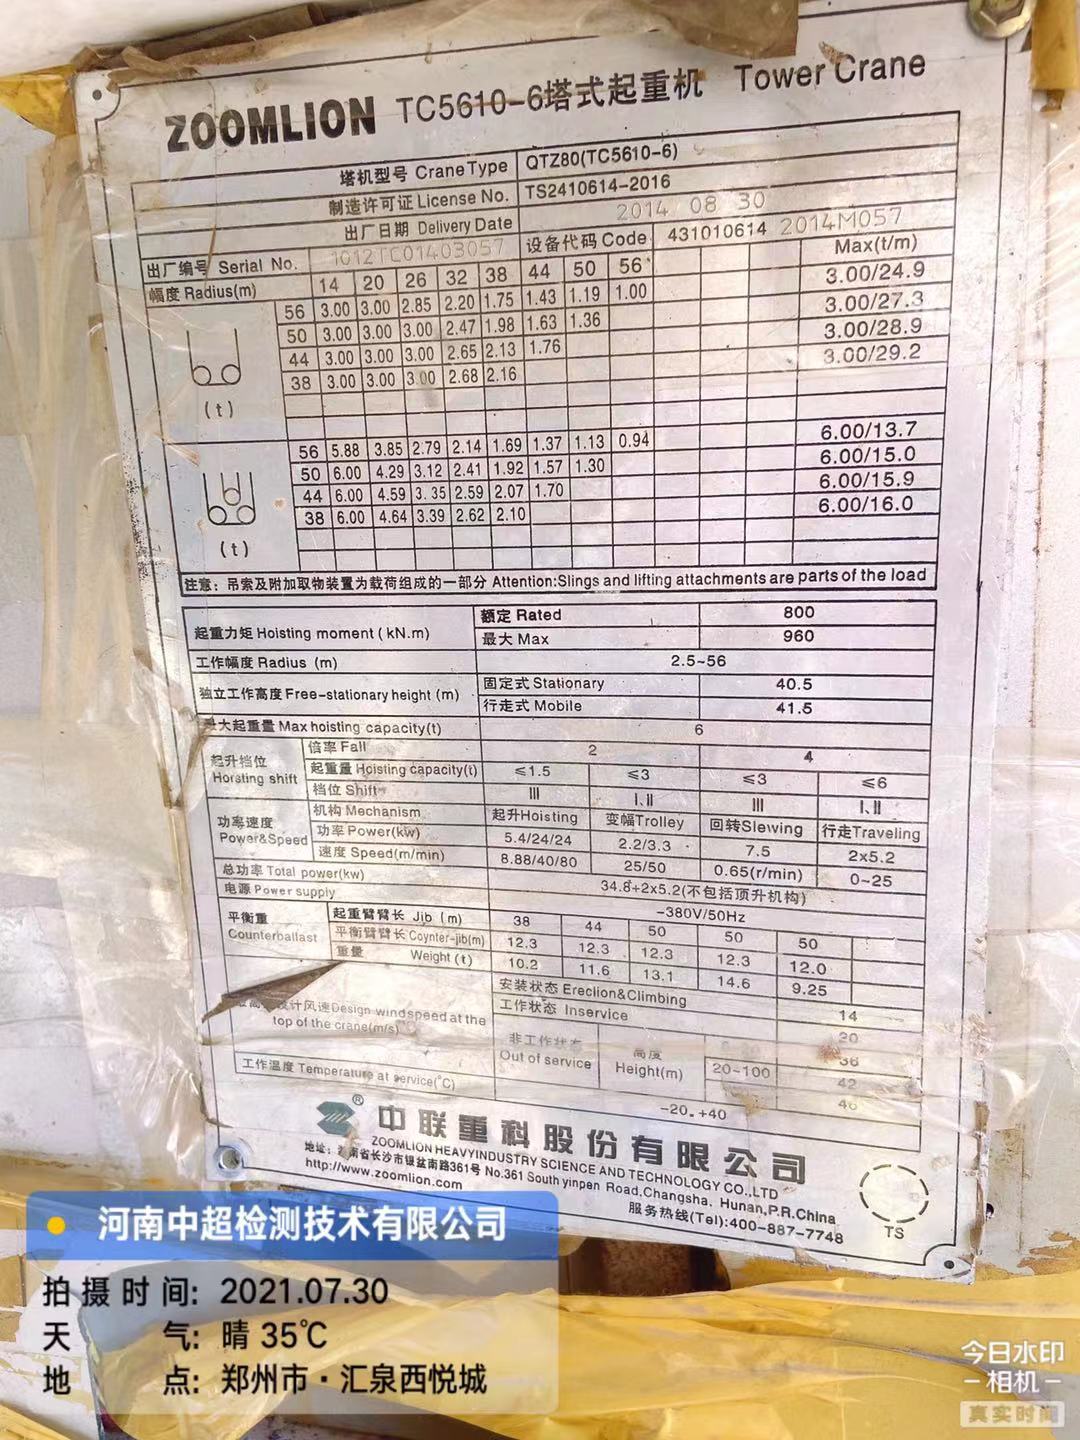 ZOOMLION TC5610-6塔式起重机 Tower Crane
塔机型号 Crane Type QTZ80(TC5610-6)
制造许可证 License No. TS2410614-2016
出厂日期 Delivery Date 2014 08 30
出厂编号 Serial No. 1012TC01403057 设备代码 Code 431010614 2014M057
幅度 Radius(m) 14 20 26 32 38 44 50 56 Max(t/m)
56 3.00 3.00 2.85 2.20 1.75 1.43 1.19 1.00 3.00/24.9
50 3.00 3.00 3.00 2.47 1.98 1.63 1.36 3.00/27.3
44 3.00 3.00 3.00 2.65 2.13 1.76 3.00/28.9
38 3.00 3.00 3.00 2.68 2.16 3.00/29.2
(t)
56 5.88 3.85 2.79 2.14 1.69 1.37 1.13 0.94 6.00/13.7
50 6.00 4.29 3.12 2.41 1.92 1.57 1.30 6.00/15.0
44 6.00 4.59 3.35 2.59 2.07 1.70 6.00/15.9
38 6.00 4.64 3.39 2.62 2.10 6.00/16.0
(t)
注意：吊索及附加取物装置为载荷组成的一部分 Attention:Slings and lifting attachments are parts of the load
起重力矩 Hoisting moment (kN.m) 额定 Rated 800
最大 Max 960
工作幅度 Radius (m) 2.5~56
独立工作高度 Free-stationary height (m) 固定式 Stationary 40.5
行走式 Mobile 41.5
最大起重量 Max hoisting capacity(t) 6
起升档位 Horsting shift 倍率 Fall 2 4
起重量 Hoisting capacity(t) ≤1.5 ≤3 ≤3 ≤6
档位 Shift Ⅲ Ⅰ、Ⅱ Ⅲ Ⅰ、Ⅱ
功率速度 Power&Speed 机构 Mechanism 起升Hoisting 变幅Trolley 回转Slewing 行走Traveling
功率 Power(kw) 5.4/24/24 2.2/3.3 7.5 2x5.2
速度 Speed(m/min) 8.88/40/80 25/50 0.65(r/min) 0~25
总功率 Total power(kw) 34.8+2x5.2(不包括顶升机构)
电源 Power supply ~380V/50Hz
平衡重 Counterballast 起重臂臂长 Jib (m) 38 44 50 50 50
平衡臂臂长 Coynter-jib(m) 12.3 12.3 12.3 12.3 12.0
重量 Weight (t) 10.2 11.6 13.1 14.6 9.25
设计风速Design windspeed at the top of the crane(m/s) 安装状态 Ereclion&Climbing 14
工作状态 Inservice 20
非工作状态 Out of service 高度 Height(m) 36
20~100 42
46
工作温度 Temperature at service(℃) -20~+40
® 中联重科股份有限公司
ZOOMLION HEAVYINDUSTRY SCIENCE AND TECHNOLOGY CO.,LTD
地址：湖南省长沙市银盆南路361号 No.361 South yinpen Road,Changsha, Hunan,P.R.China
http://www.zoomlion.com
服务热线(Tel):400-887-7748
TS
河南中超检测技术有限公司
拍摄时间: 2021.07.30
天 气: 晴 35℃
地 点: 郑州市·汇泉西悦城
今日水印
-相机-
真实时间